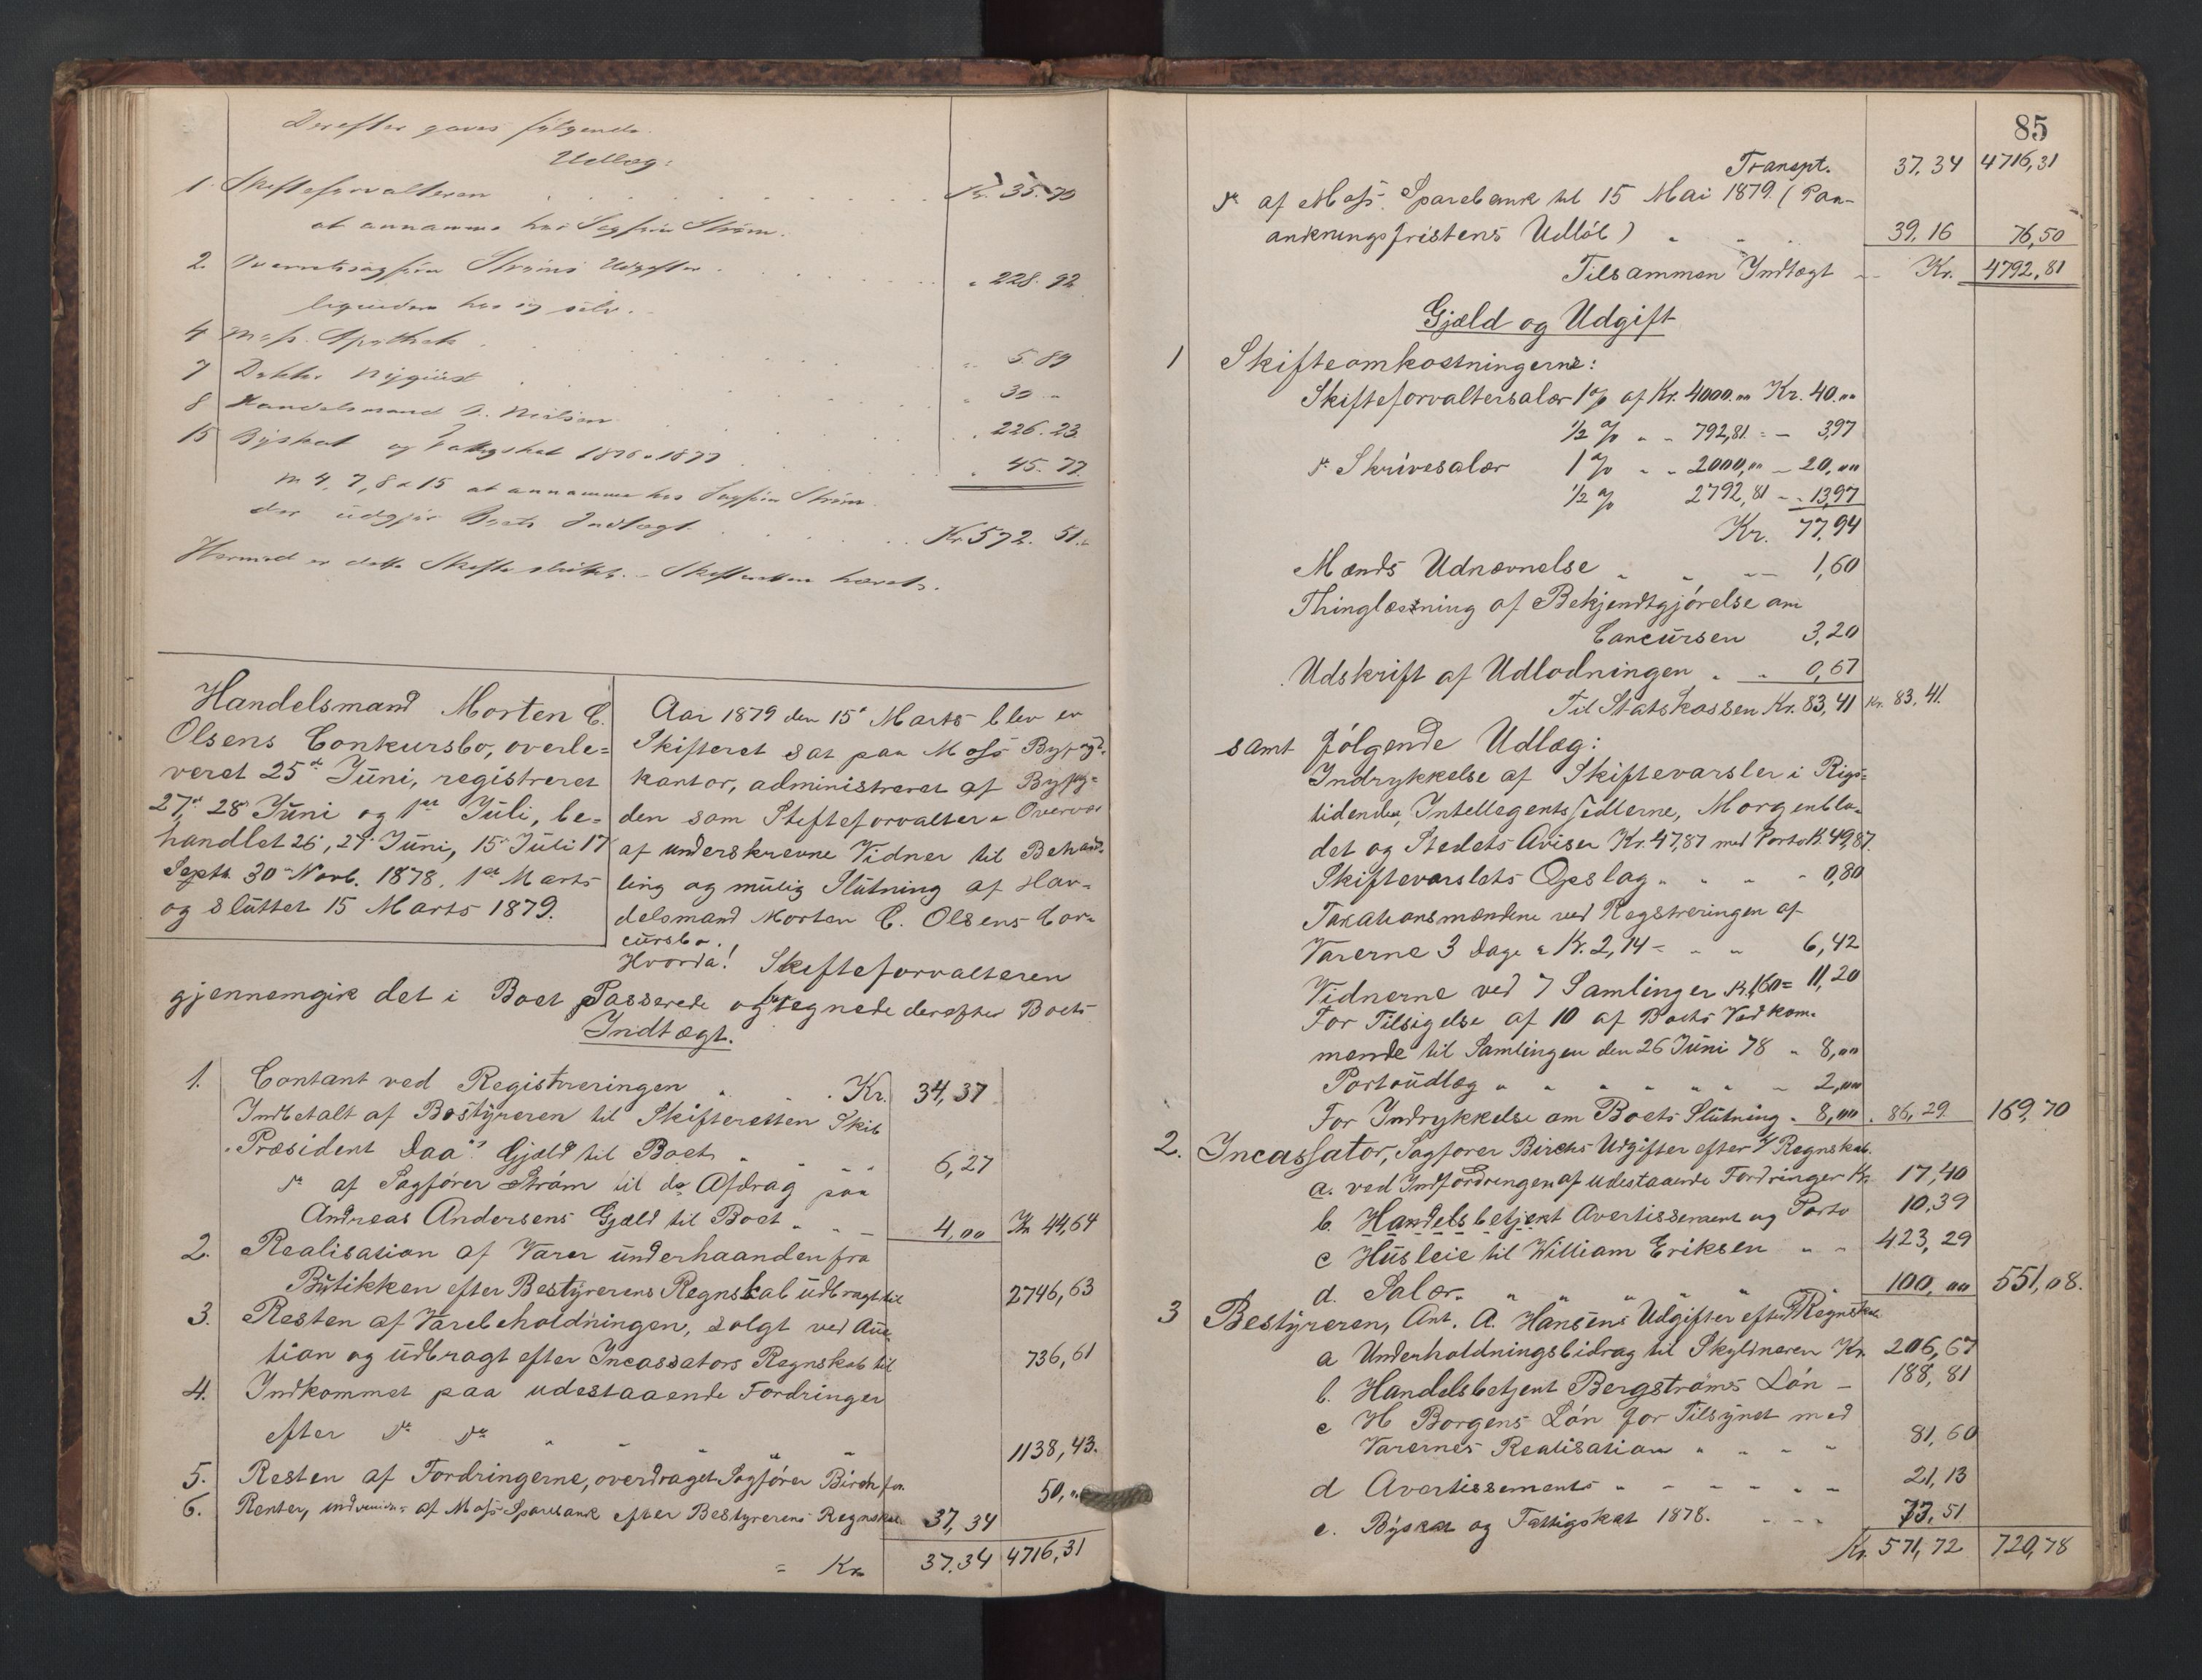 Derefter gaves følgende
Udlæg:
1. Skifteforvalteren . . . Kr. 35.70
at annamme hos Sagfører Strøm.
2. Overretssagfører Strøms Udgifter . . . " 228.92
ligeledes hos sig selv.
4 Moss Apothek . . . " 5.89
7 Doktor Nyquist . . . " 30 "
8 Handelsmand A. Nielsen . . . " 226.23
15 Byskat og Fattigskat 1876 & 1877 . . . " 45.77
No 4, 7, 8 & 15 at annamme hos Sagfører Strøm
der udgjør Boets Indtægt . . . Kr 572.51.
Hermed er dette Skifte sluttet. – Skifteretten hævet.
Handelsmand Morten C.
Olsens Conkursbo, overle=
veret 25de Juni, registreret
27de, 28 Juni og 1ste Juli, be=
handlet 26, 27 Juni, 15 Juli 17
Septb. 30 Novb. 1878, 1ste Marts
og sluttet 15 Marts 1879.
Aar 1879 den 15de Marts blev en
Skifteret sat paa Moss Byfogd=
kontor, administreret af Byfog=
den som Skifteforvalter i Overvær
af underskrevne Vidner til Behand=
ling og mulig Slutning af Han=
delsmand Morten C. Olsens Con=
cursbo.
Hvorda! Skifteforvalteren
gjennemgik det i Boet Passerede og tegnede derefter Boets
Indtægt.
1. Contant ved Registreringen " . Kr. 34,37
Indbetalt af Bostyreren til Skifteretten Skib
"Præsident Daa's" Gjæld til Boet " " " 6,27
do af Sagfører Strøm til do Afdrag paa
Andreas Andersens Gjæld til Boet " " 4,00 Kr 44,64
2. Realisation af Varer underhaanden fra
Butikken efter Bestyrerens Regnskab udbragt til 2746,63
3. Resten af Varebeholdningen, solgt ved Auc=
tion og udbragt efter Incassators Regnskab til 736,61
4. Indkommet paa udestaaende Fordringer
efter do do " " " " 1138,43.
5. Resten af Fordringerne, overdraget Sagfører Birch for 50,00
6. Renter, indvundne af Moss Sparebank efter Bestyrerens Regnskab 37,34
= Kr. 37.34 4716,31
85
Transpt. 37.34 4716,31
do af Moss Sparebank til 15 Mai 1879 (Paa-
ankningsfristens Udløb) " " " 39,16 76,50
Tilsammen Indtægt – Kr. 4792,81
Gjæld og Udgift
1 Skifteomkostningerne:
Skifteforvaltersalær 1% af Kr. 4000.00 Kr. 40.00
1/2 % " " 792,81 = – 3,97
do Skrivesalær 1% " " 2000,00 – 20,00
1/2 % 2792,81 – " 13,97
Kr. 77,94
Mænds Udnævnelse " " " 1,60
Thinglæsning af Bekjendtgjørelse om
Concursen 3,20
Udskrift af Udlodningen " " 0,67
Til Statskassen Kr. 83,41 Kr. 83,41.
samt følgende Udlæg:
Indrykkelse af Skiftevarsler i Rigs=
tidende, Intellegentssedlerne, Morgenbla=
det og Stedets Aviser Kr. 47,87 med Porto K. 49,87.
Skiftevarslets Opslag " " " " 0,80
Taxationsmændene ved Registreringen af
Varerne 3 Dage a Kr. 2,14 = " " 6,42
Vidnerne ved 7 Samlinger K 1,60 = 11,20
For Tilsigelse af 10 af Boets Vedkom=
mende til Samlingen den 26 Juni 78 " 8,00
Portoudlæg " " " " " " " 2,00
For Indrykkelse om Boets Slutning " 8,00 . 86,29 169,70
2. Incassator, Sagfører Birchs Udgifter efter Regnskab.
a. ved Indfordringen af udestaaende Fordringer Kr 17,40
b Handelsbetjent Avertissement og Porto 10,39
c Husleie til William Eriksen " " 423,29
d. Salær " " " " " 100,00 551,08.
3 Bestyreren, Ant. A. Hansens Udgifter efter Regnskab
a Underholdningsbidrag til Skyldneren Kr. 206,67
b. Handelsbetjent Bergstrøms Løn – 188,81
c H Borgens Løn for Tilsynet med
Varernes Realisation " " " " 81,60
d Avertissements " " " " " " 21,13
e. Byskat og Fattigskat 1878. " " " 73,51
Kr. 571,72 720,78